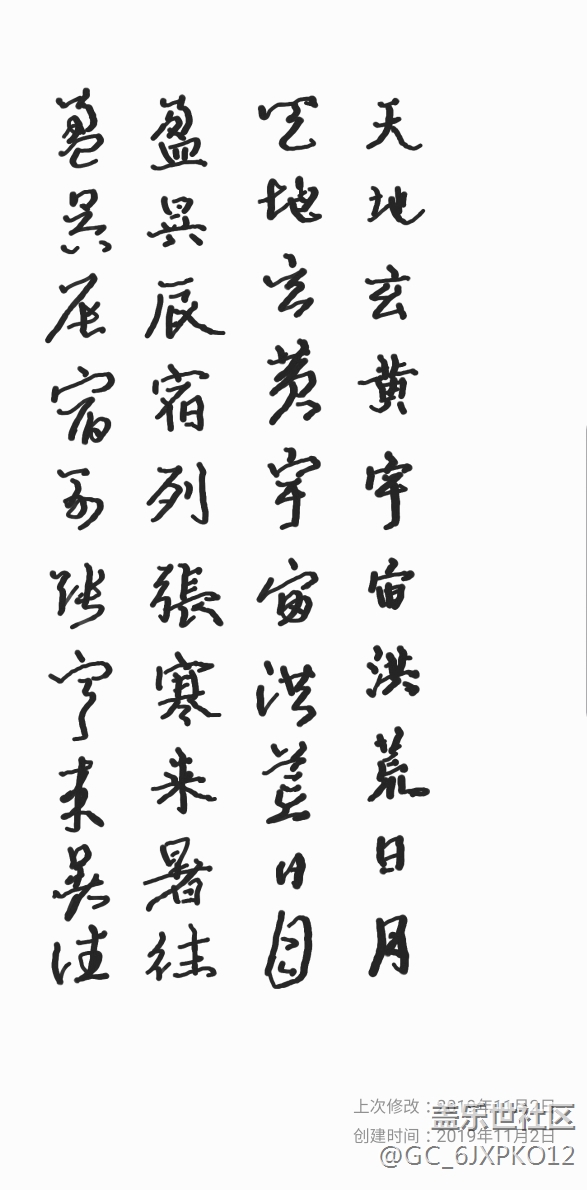 天地玄黄宇宙洪荒日月
天地玄黄宇宙洪荒日月
盈昃辰宿列張寒来暑往
盈昃辰宿列张寒来暑往
上次修改：2019年11月2日
盖乐世社区
创建时间：2019年11月2日
@GC_6JXPKO12